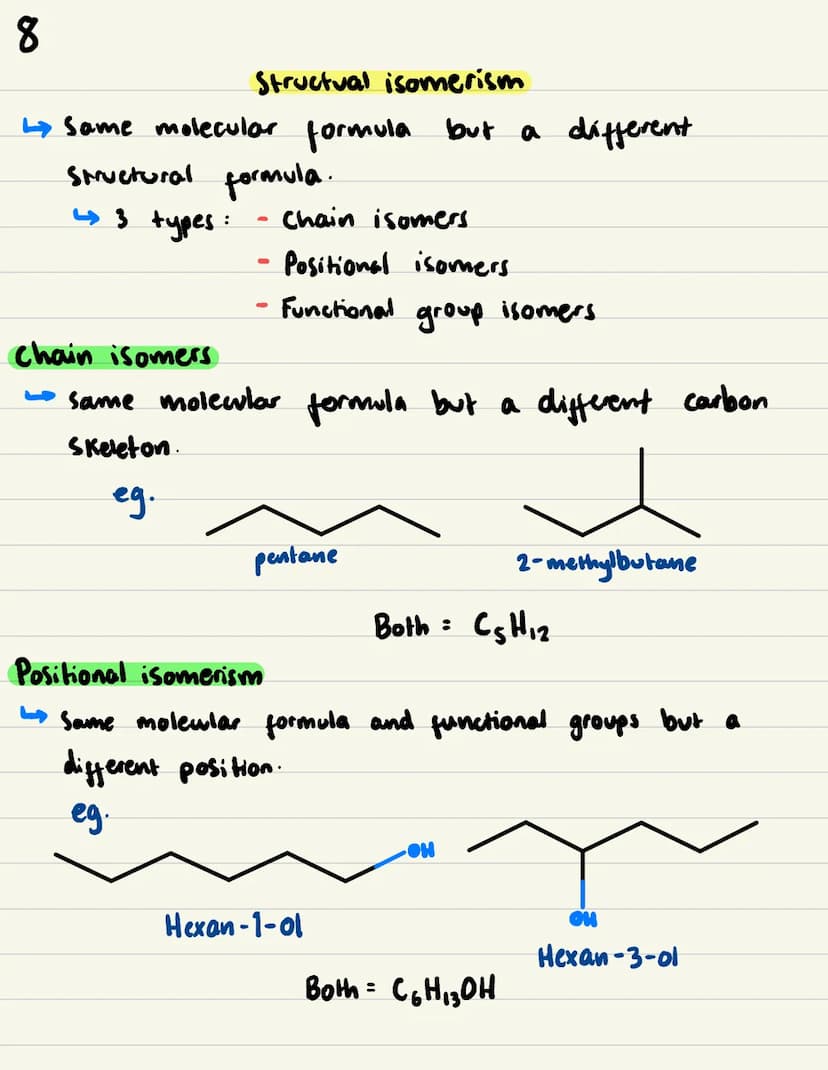 8
Structual isomerism
↳ Same molecular formula but a different
structural formula.
↳ 3 types: - Chain isomers
- Positional isomers
- Functional group isomers
Chain isomers
↳ Same molecular formula but a different carbon
skeleton.
eg.
pentane 2-methylbutane
Both = C₅H₁₂
Positional isomerism
↳ Same molecular formula and functional groups but a
different position.
eg.
OH
OH
Hexan-1-ol
Hexan-3-ol
Both = C₆H₁₃OH